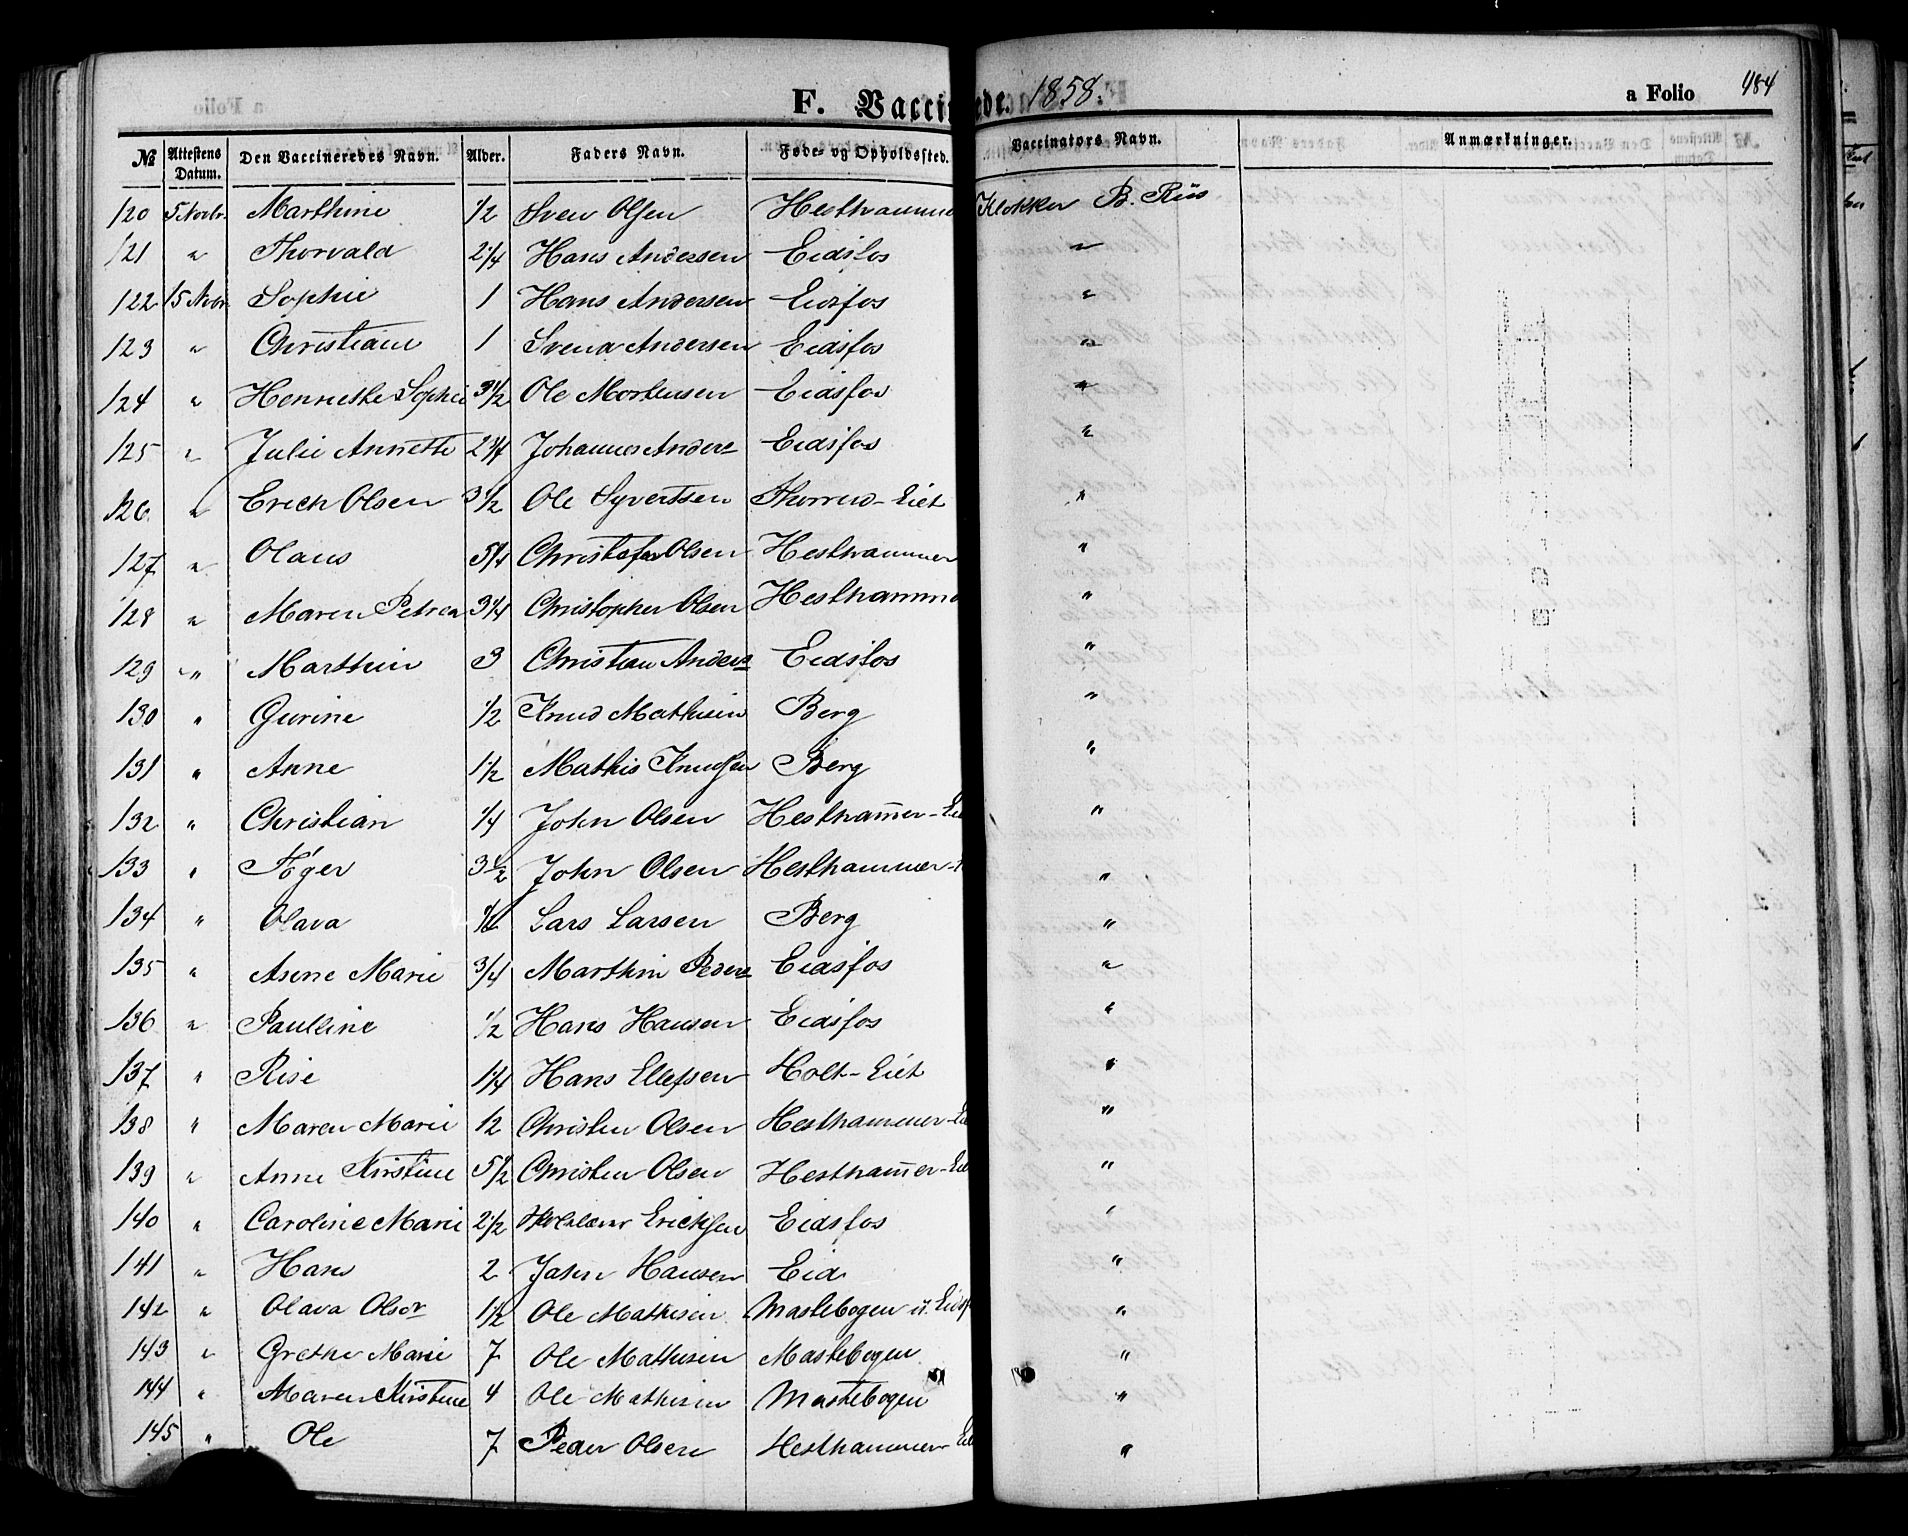 F. Vaccinerede. 1858. a Folio 484
№ Attestens Datum. Den Vaccineredes Navn. Alder. Faders Navn. Føde- og Opholdssted. Vaccinators Navn. Anmærkninger.
120 5 Novbr. Marthine 1/2 Sven Olsen Hesthammer Klokker B. Riis
121 " Thorvald 2 1/4 Hans Andersen Eidsfos "
122 15 Novbr. Sophie 1 Hans Andersen Eidsfos "
123 " Christiane 1 Svend Andersen Eidsfos "
124 " Henriethe Sophie 3 1/2 Ole Mortensen Eidsfos "
125 " Julie Annette 2 3/4 Johannes Anders Eidsfos "
126. " Erich Olsen 3 1/2 Ole Syvertsen Thorrud-Eiet "
127 " Olaus 5/4 Christofer Olsen Hesthammer "
128 " Maren Petrea 3 1/4 Christopher Olsen Hesthammer "
129 " Marthin 3 Christian Anders Eidsfos "
130 " Gurine 1/2 Knud Mathisen Berg "
131 " Anne 1 1/2 Mathis Knudsen Berg "
132 " Christian 1/4 John Olsen Hestham̅er-Eie "
133 " Tøger 3 1/2 John Olsen Hesthammer- "
134 " Olava Lars Larsen Berg "
135 " Asene Marie 3/4 Marthin Peders Eidsfos "
136 " Pauline 1/2 Hans Hansen Eidsfos "
137 " Rise 1 1/4 Hans Ellefsen Holt-Eiet "
138 " Maren Marie 12 Christen Olsen Hesthammer-Ei "
139 " Anne Kirstine 5 1/2 Christen Olsen Hestham̅er-Eie "
140 " Caroline Marie 2 1/2 Erichsen Eidsfos "
141 " Hans 2 John Hansen Eid "
142 " Olava Olsdr 1 1/2 Ole Mathisen Mastebogen u. Eidsf "
143 " Grethe Marie 7 Ole Mathisen Mastebogen "
144 " Maren Kirstine 4 Ole Mathisen Mastebogen "
145 " Ole 7 Peder Olsen Hesthammer-Eie "